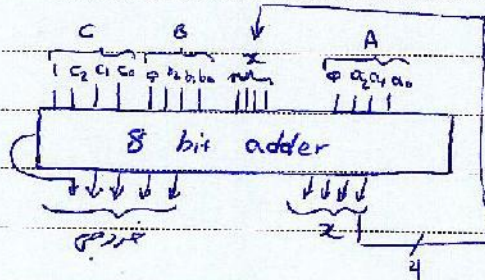 C B x A
1 c₂ c₁ c₀ φ b₂ b₁ b₀ φ a₂ a₁ a₀
8 bit adder
خروجی x
4